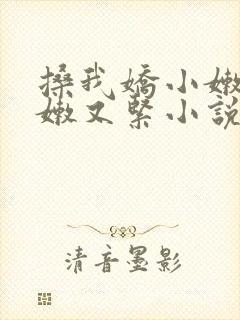 搡我嬌小嫩
嫩又緊小說
清音墨影